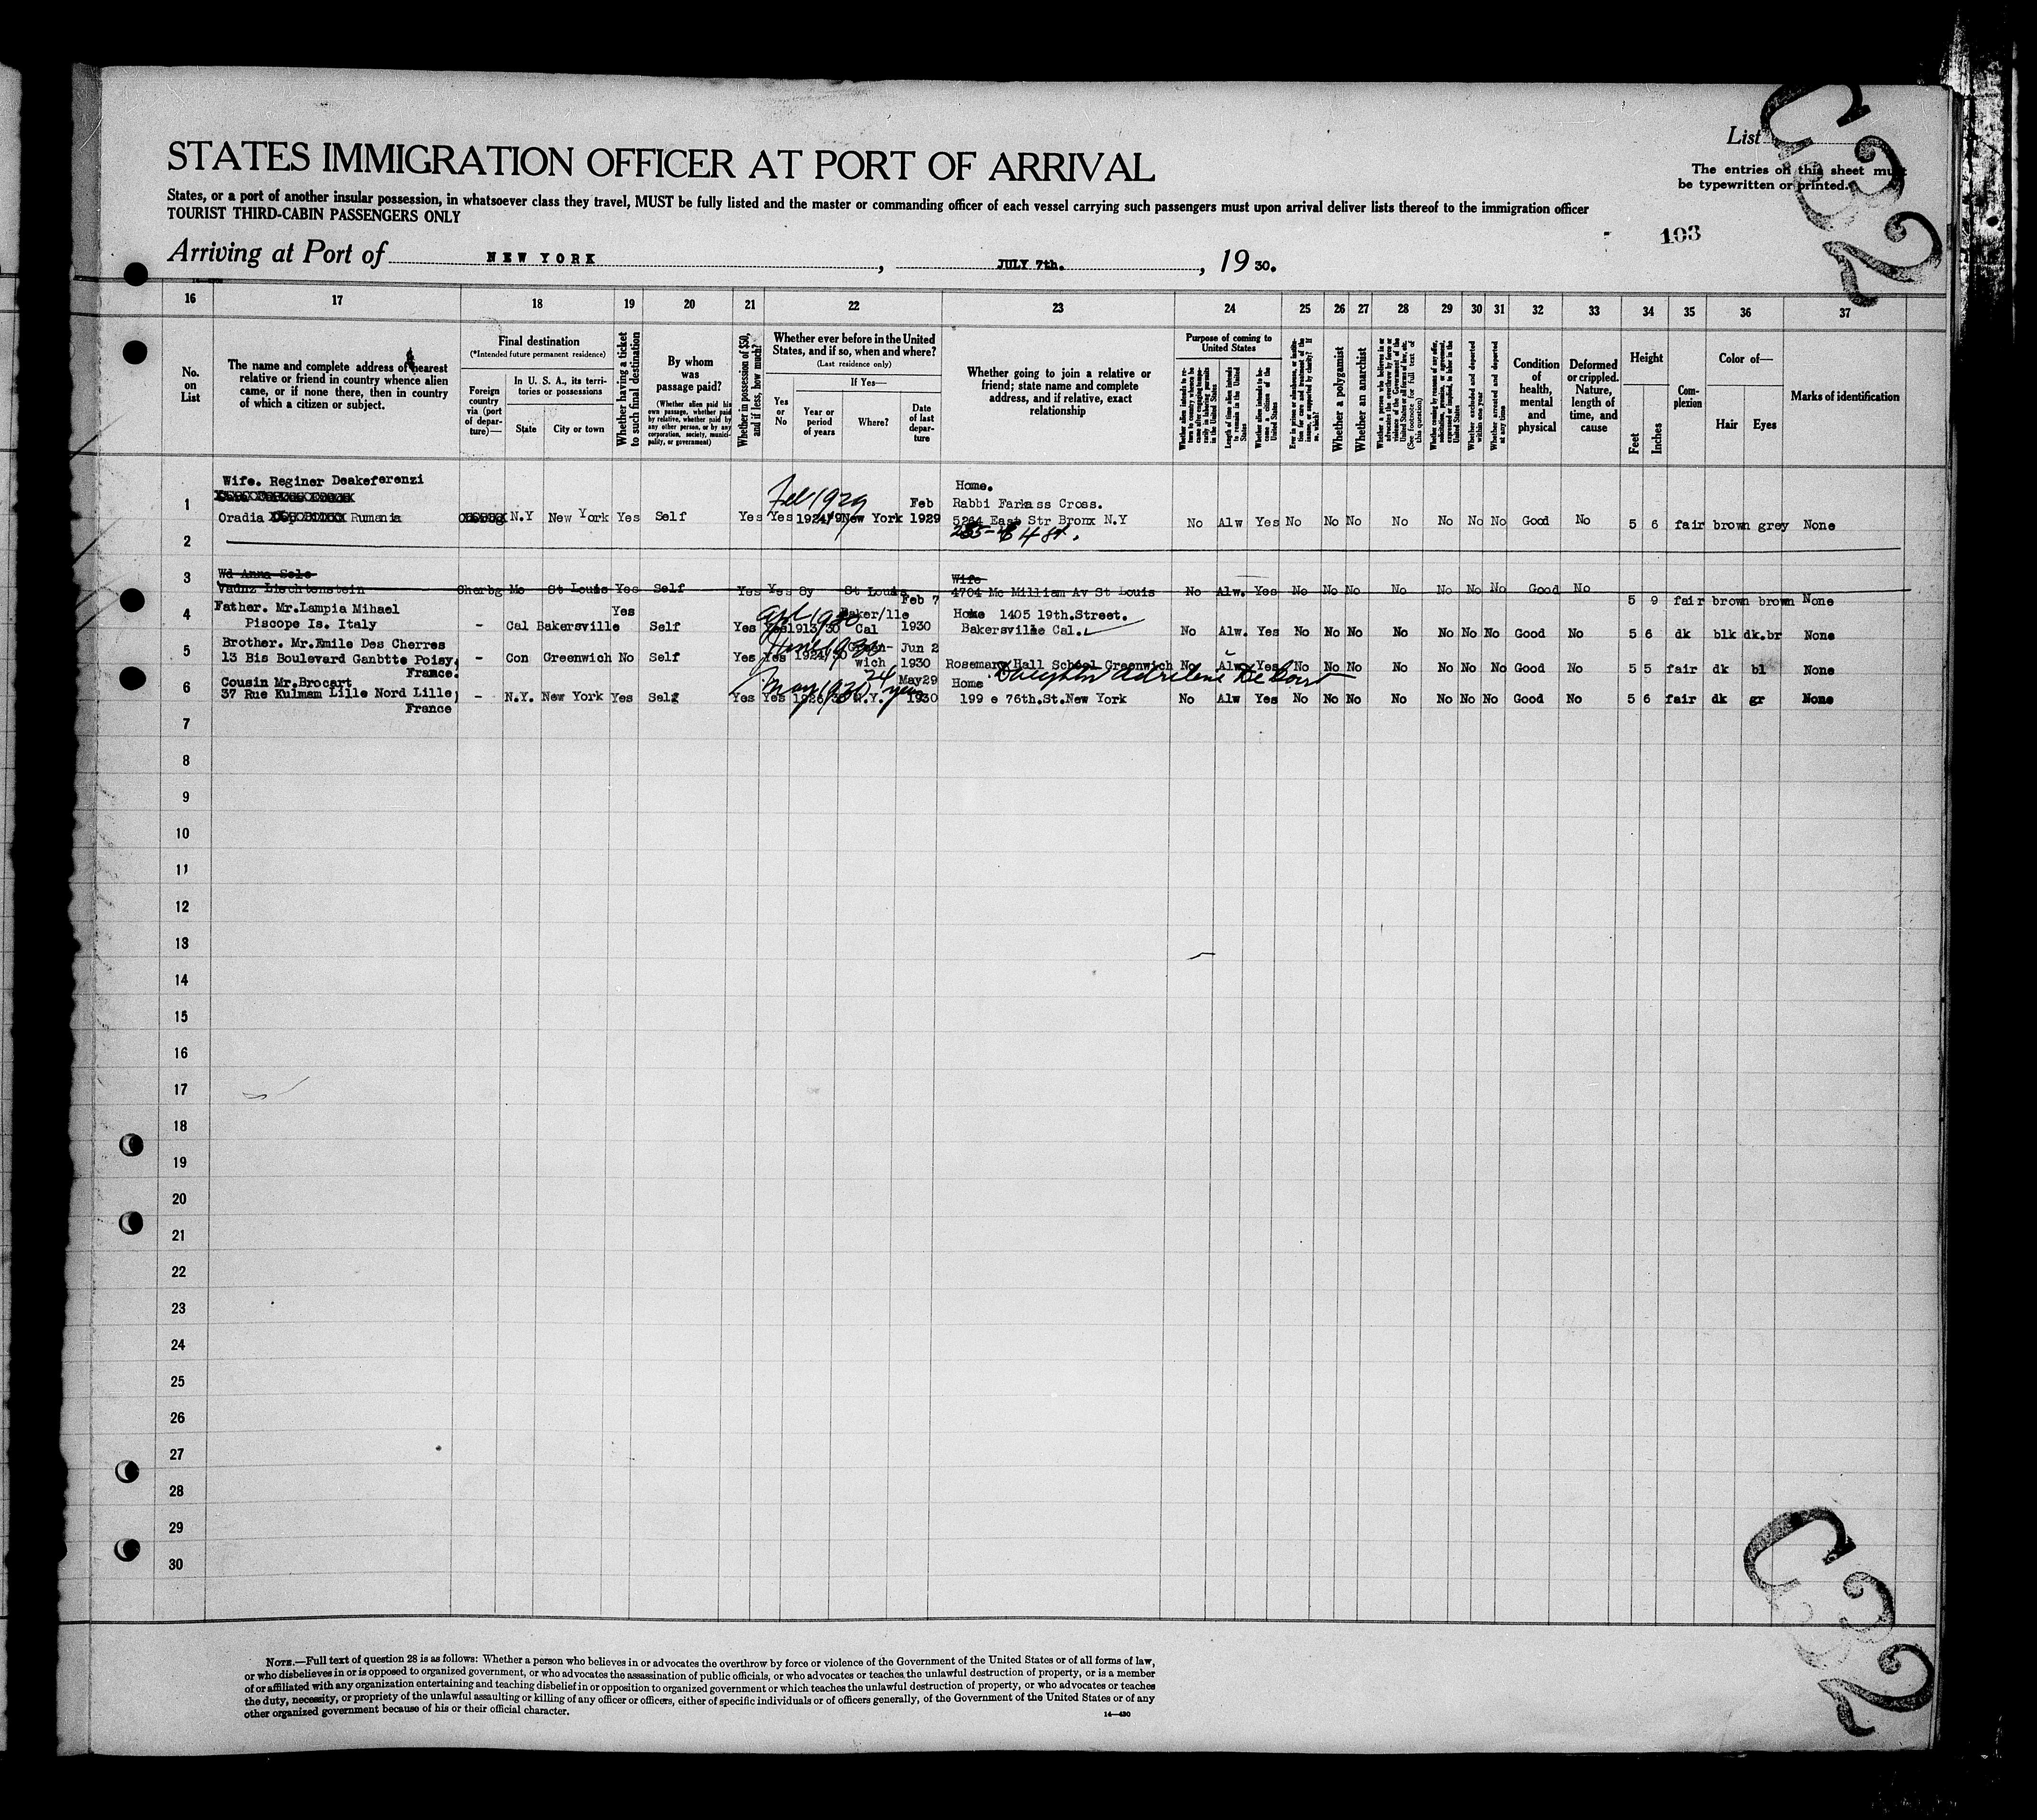 List
C32
STATES IMMIGRATION OFFICER AT PORT OF ARRIVAL
The entries on this sheet must
be typewritten or printed.
States, or a port of another insular possession, in whatsoever class they travel, MUST be fully listed and the master or commanding officer of each vessel carrying such passengers must upon arrival deliver lists thereof to the immigration officer
TOURIST THIRD-CABIN PASSENGERS ONLY
103
Arriving at Port of NEW YORK, JULY 7th., 1930.
16 17 18 19 20 21 22 23 24 25 26 27 28 29 30 31 32 33 34 35 36 37
No. on List
The name and complete address of nearest relative or friend in country whence alien came, or if none there, then in country of which a citizen or subject.
Final destination
(*Intended future permanent residence)
Foreign country via (port of departure)—
In U. S. A., its territories or possessions
State
City or town
Whether having a ticket to such final destination
By whom was passage paid?
(Whether alien paid his own passage, whether paid by relative, whether paid by any other person, or by any corporation, society, municipality, or government)
Whether in possession of $50, and if less, how much?
Whether ever before in the United States, and if so, when and where?
(Last residence only)
Yes or No
If Yes—
Year or period of years
Where?
Date of last departure
Whether going to join a relative or friend; state name and complete address, and if relative, exact relationship
Purpose of coming to United States
Length of time alien intends to remain in the United States
Whether alien intends to become a citizen of the United States
Whether a polygamist
Whether an anarchist
(See footnote for full text of this question)
Whether excluded and deported within one year
Whether arrested and deported at any time
Condition of health, mental and physical
Deformed or crippled. Nature, length of time, and cause
Height
Feet
Inches
Complexion
Color of—
Hair
Eyes
Marks of identification
Wife. Reginer Deakeferenzi
Feb 1929
Home.
1 Feb Rabbi Farkass Cross.
Oradia Rumania N.Y New York Yes Self Yes Yes 1924/9 New York 1929 5264 East Str Bronx N.Y No Alw Yes No No No No No No No Good No 5 6 fair brown grey None
2
Wd Anna Sele Wife
3 Vaduz Liechtenstein Cherbg Mo St Louis Yes Self Yes Yes 8y St Louis 4764 Mc Milliam Av St Louis No Alw. Yes No No No No No No No Good No 5 9 fair brown brown None
4 Father. Mr.Lampia Mihael Yes Feb 7 Home 1405 19th.Street.
Piscope Is. Italy - Cal Bakersville Self Yes Yes 1913/30 Cal 1930 Bakersville Cal. No Alw. Yes No No No No No No No Good No 5 6 dk blk dk.br None
5 Brother. Mr.Emile Des Cherres Jun 2
13 Bis Boulevard Ganbtte Poisy, - Con Greenwich No Self Yes Yes 1924/30 wich 1930 Rosemary Hall School Greenwich No Alw Yes No No No No No No No Good No 5 5 fair dk bl None
France.
6 Cousin Mr.Brocart May29 Home
37 Rue Kulmam Lille Nord Lille, - N.Y. New York Yes Self Yes Yes N.Y. 1930 199 e 76th.St.New York No Alw Yes No No No No No No No Good No 5 6 fair dk gr None
France
7
8
9
10
11
12
13
14
15
16
17
18
19
20
21
22
23
24
25
26
27
28
29
30
C32
NOTE.—Full text of question 28 is as follows: Whether a person who believes in or advocates the overthrow by force or violence of the Government of the United States or of all forms of law,
or who disbelieves in or is opposed to organized government, or who advocates the assassination of public officials, or who advocates or teaches the unlawful destruction of property, or is a member
of or affiliated with any organization entertaining and teaching disbelief in or opposition to organized government or which teaches the unlawful destruction of property, or who advocates or teaches
the duty, necessity, or propriety of the unlawful assaulting or killing of any officer or officers, either of specific individuals or of officers generally, of the Government of the United States or of any
other organized government because of his or their official character.
14—430